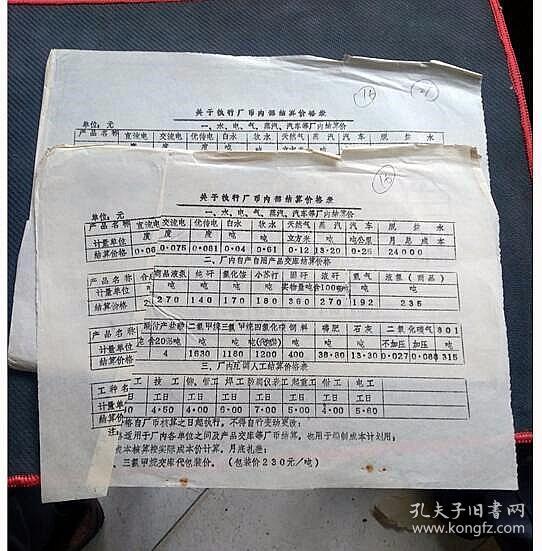 15
关于执行厂币内部结算价格表
一、水、电、气、蒸汽、汽车等厂内结算价
单位：元
产品名称 直流电 交流电 优待电 白水 软水 天然气 蒸汽 汽车 脱盐水
15
关于执行厂币内部结算价格表
单位：元 一、水、电、气、蒸汽、汽车等厂内结算价
产品名称 直流电 交流电 优待电 白水 软水 天然气 蒸汽 汽车 脱盐水
计量单位 度 度 度 吨 吨 立方米 吨 吨公里 月总成本
结算价格 0·06 0·075 0·081 0·04 0·61 0·12 13·20 0·26 24000
二、厂内自产自用产品交库结算价格
产品名称 商品液氨 纯碱 氯化铵 小苏打 固碱 液碱 氨气 液氯（商品）
计量单位 吨 吨 吨 吨 实物量吨 含100%吨 吨 吨
结算价格 270 140 170 180 360 270 192 235
产品名称 二氯甲烷 三氯甲烷 四氯化碳 饲料 磷肥 石灰 二氧化碳气 801
计量单位 含20%吨 吨 吨 吨 吨 吨 吨 不加压 加压 吨
结算价格 4 1630 1180 1200 400 38·80 13·30 0·027 0·068 315
三、厂内互调人工结算价格表
工种名 工 技工 铆、管工 焊工 防腐 仪表工 起重工 钳工 电工
计量单位 工日 工日 工日 工日 工日 工日 工日
结算价格 4·50 4·00 7·00 6·00 5·00 4·00 5·60
价格自厂币核算之日起执行，不得自行变动更改；
注 适用于厂内各单位之间及产品交库等厂币结算，也用于编制成本计划用；
成本核算按实际成本价计算，月底扎差；
三氯甲烷交库代包装价。（包装价230元／吨）
孔夫子旧书网
www.kongfz.com